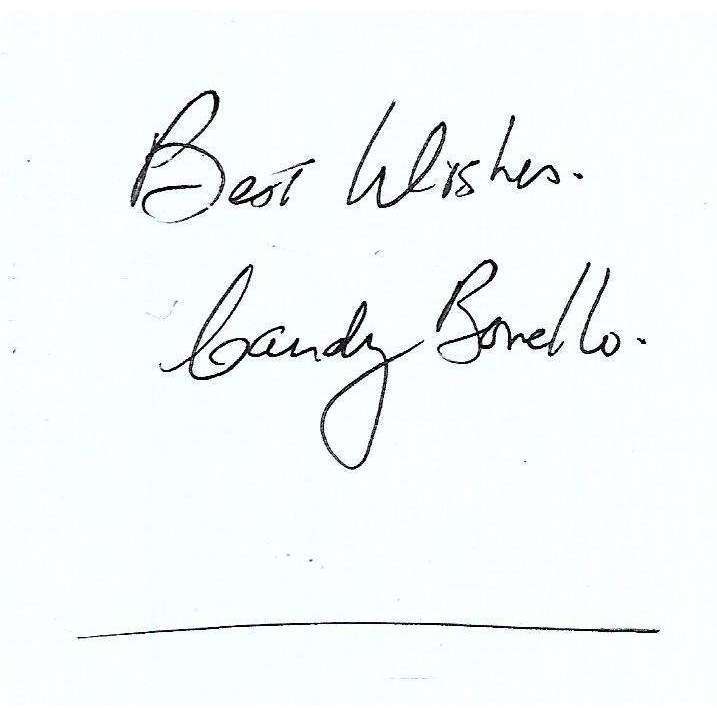 Best Wishes.
Candy Bonello.